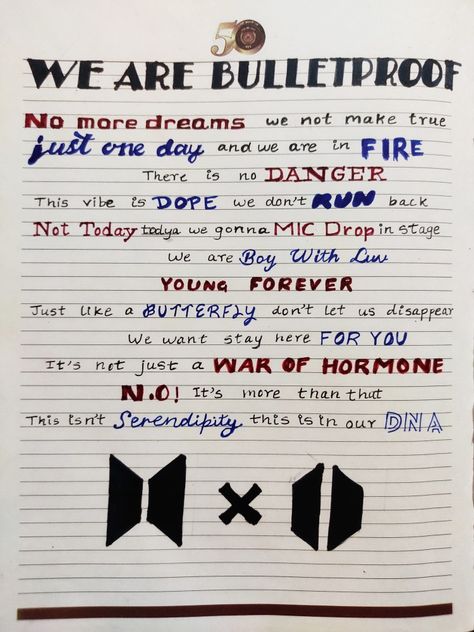 50
WE ARE BULLETPROOF
No more dreams we not make true
just one day and we are in FIRE
There is no DANGER
This vibe is DOPE we don't RUN back
Not Today todya we gonna MIC Drop in stage
We are Boy With Luv
YOUNG FOREVER
Just like a BUTTERFLY don't let us disappear
We want stay here FOR YOU
It's not just a WAR OF HORMONE
N.O! It's more than that
This isn't Serendipity this is in our DNA